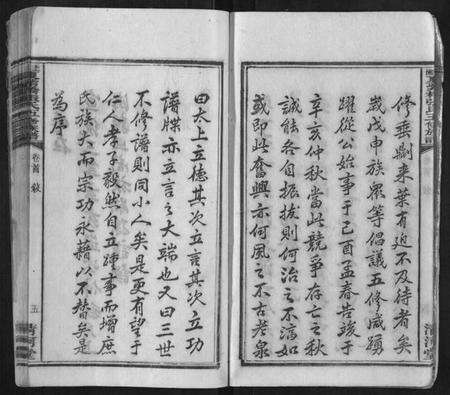 修乘劂來葉有迫不及待者矣
歲戊申族衆等倡議五修咸踴
躍從公始事于己酉孟春告竣于
辛亥仲秋當此競爭存亡之秋
誠能各自振拔則何治之不漓如
或即此奮興亦何風之不古老泉
曰太上立德其次立言其次立功
譜牒亦立言之大端也又曰三世
不修譜則同小人矣是更有望于
仁人孝子毅然自立踵事而增庶
氏族大而宗功永藉以不替矣是
為序
卷首 敘
五
清河堂
清河堂